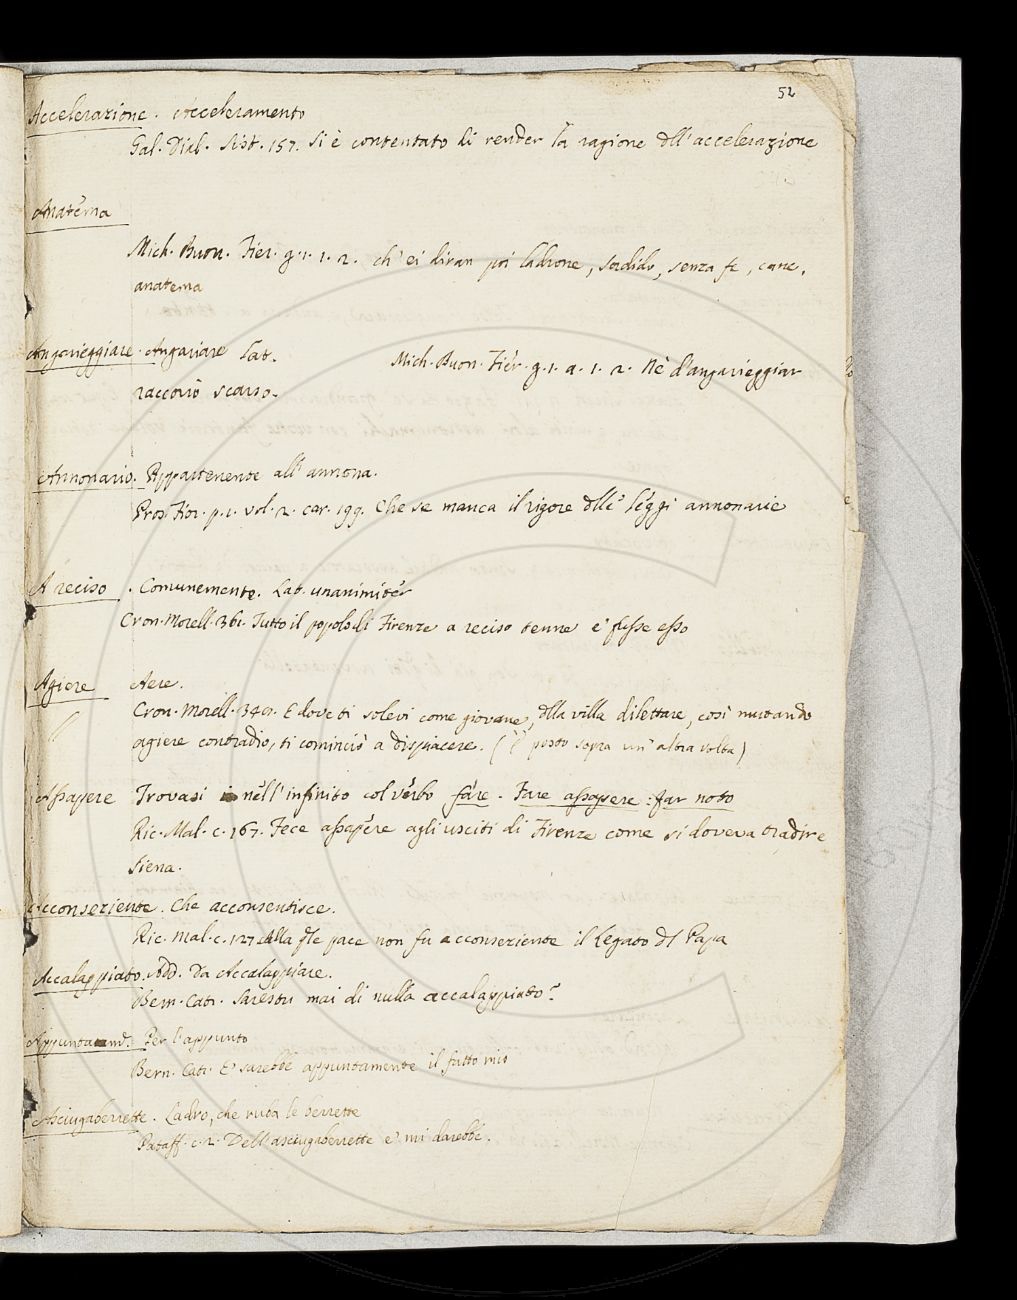 52
Accelerazione. Acceleramento
Gal. Dial. Sist. 157. Si è contentato di render la ragione dell'accelerazione
Anatema
Mich. Buon. Fier. g. 1. 1. 2. ch' ei diran poi ladrone, sordido, senza fe, cane,
anatema
Angarieggiare. Angariare Lat.
Mich. Buon. Fier. g. 1. a. 1. 2. Nè d'angarieggiar
raccorrò scarso.
Annonario. Appartenente all' annona.
Pros. Fior. p. 1. vol. 2. car. 199. Che se manca il rigore delle leggi annonarie
A reciso. Comunemente. Lat. unanimiter
Cron. Morell. 361. Tutto il popolo di Firenze a reciso tenne e' fusse esso
Agiere Aere.
Cron. Morell. E dove ti solevi come giovane, della villa dilettare, così mutando
agiere contradio, ti cominciò a dispiacere. (È posto sopra un' altra volta)
Assapere Trovasi nell' infinito col verbo fare. Fare assapere: far noto
Ric. Mal. c. 167. Fece assapere agli usciti di Firenze come si doveva tradire
Siena.
Acconseziente. Che acconsentisce.
Ric. Mal. c. 127 Alla qle pace non fu acconseziente il Legato dl Papa
Accalappiato. Add. Da Accalappiare.
Bern. Catr. Sarestu mai di nulla accalappiato?
Per l'appunto
Bern. Catr. E' sarebbe appuntamente il fatto mio
Asciugaberrette. Ladro, che ruba le berrette
Pataff. c. 2. Dell' asciugaberrette e' mi darebbe.